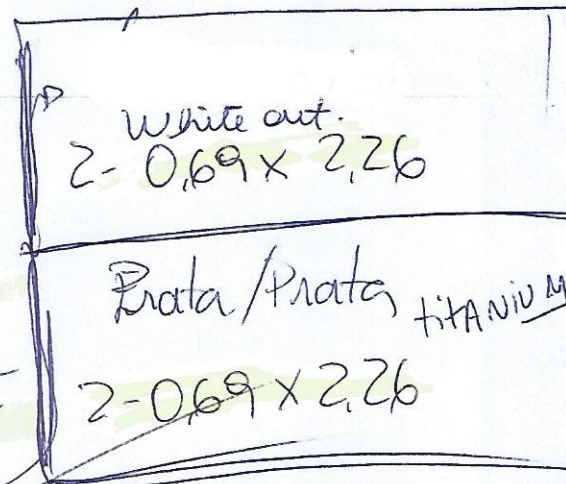 White out.
2- 0,69 x 2,26
Prata/Prata titANiUM
2-0,69 x 2,26